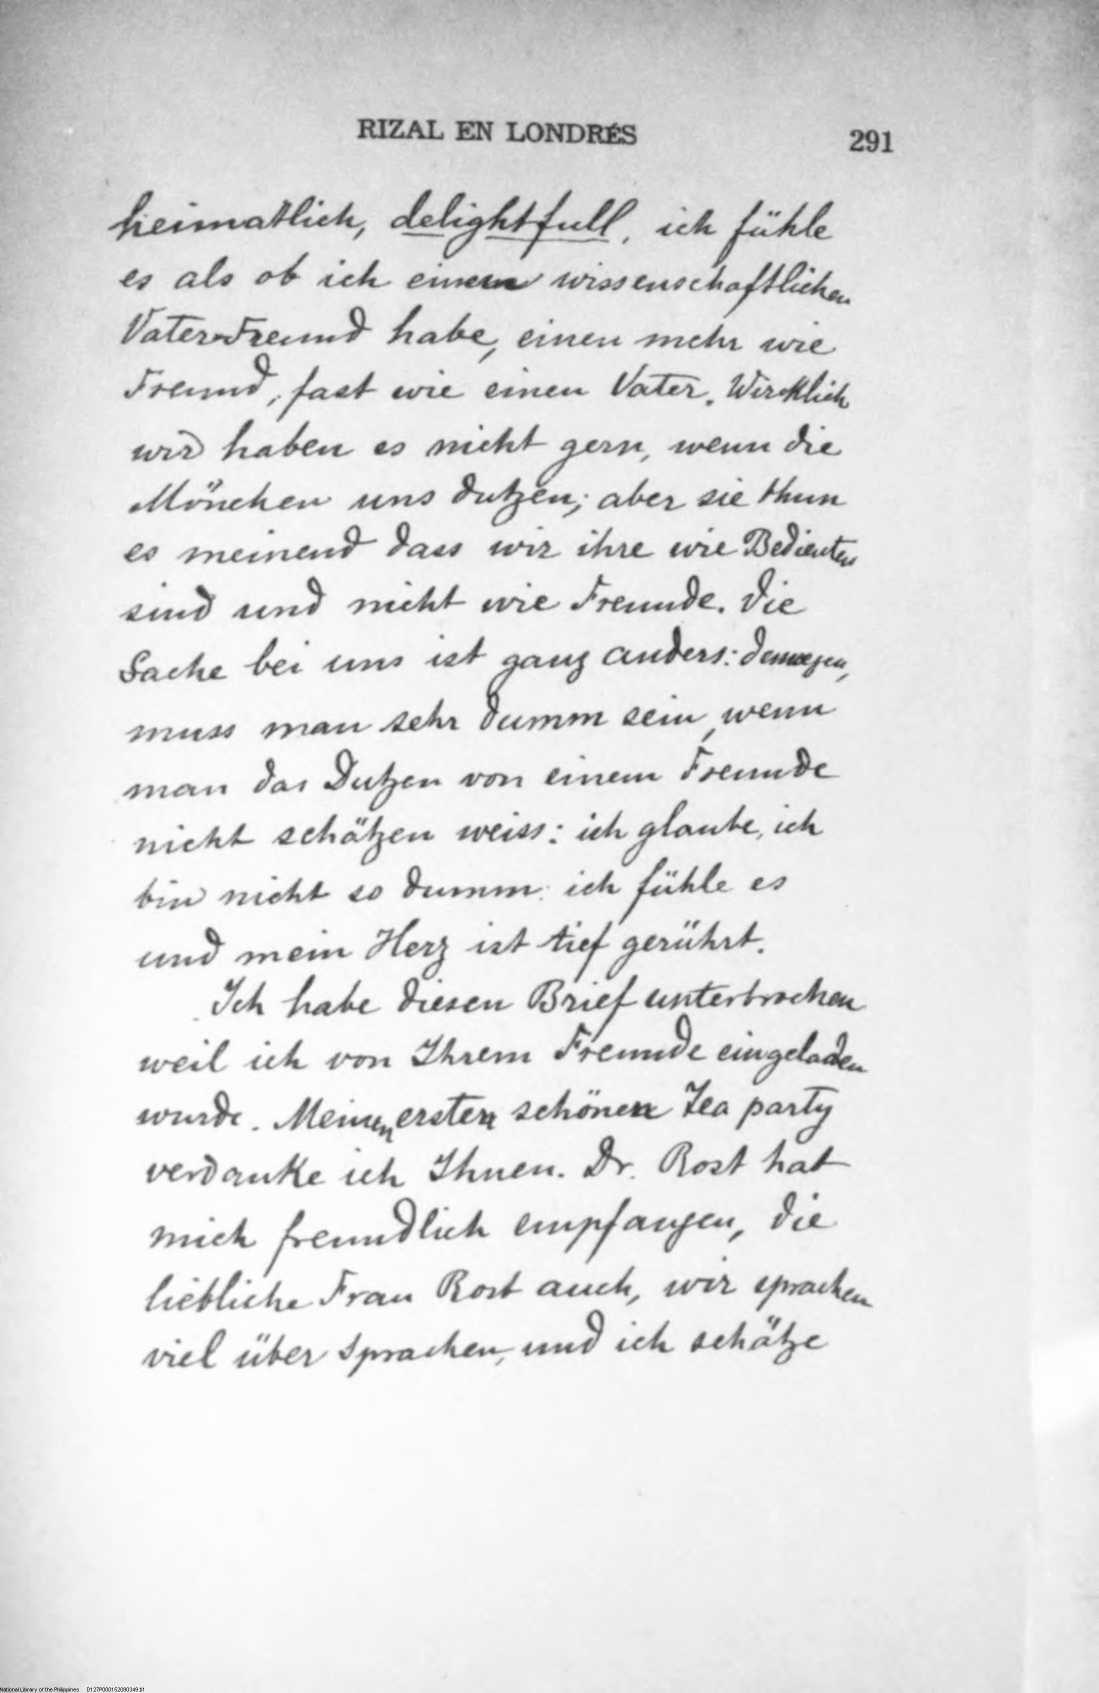 RIZAL EN LONDRÉS 291
heimatlich, delightfull, ich fühle
es als ob ich einen wissenschaftlichen
Vater-Freund habe, einen mehr wie
Freund, fast wie einen Vater. Wircklich
wir haben es nicht gern, wenn die
Mönchen uns dutzen; aber sie thun
es meinend dass wir ihre wie Bedienten
sind und nicht wie Freunde. Die
Sache bei uns ist ganz anders:
muss man sehr dumm sein, wenn
man das Dutzen von einem Freunde
nicht schätzen weiss: ich glaube, ich
bin nicht so dumm: ich fühle es
und mein Herz ist tief gerührt.
Ich habe diesen Brief unterbrochen
weil ich von Ihrem Freunde eingeladen
wurde. Meinen ersten schönen Tea party
verdanke ich Ihnen. Dr. Rost hat
mich freundlich empfangen, die
liebliche Frau Rost auch, wir sprachen
viel über Sprachen, und ich schätze
National Library of the Philippines